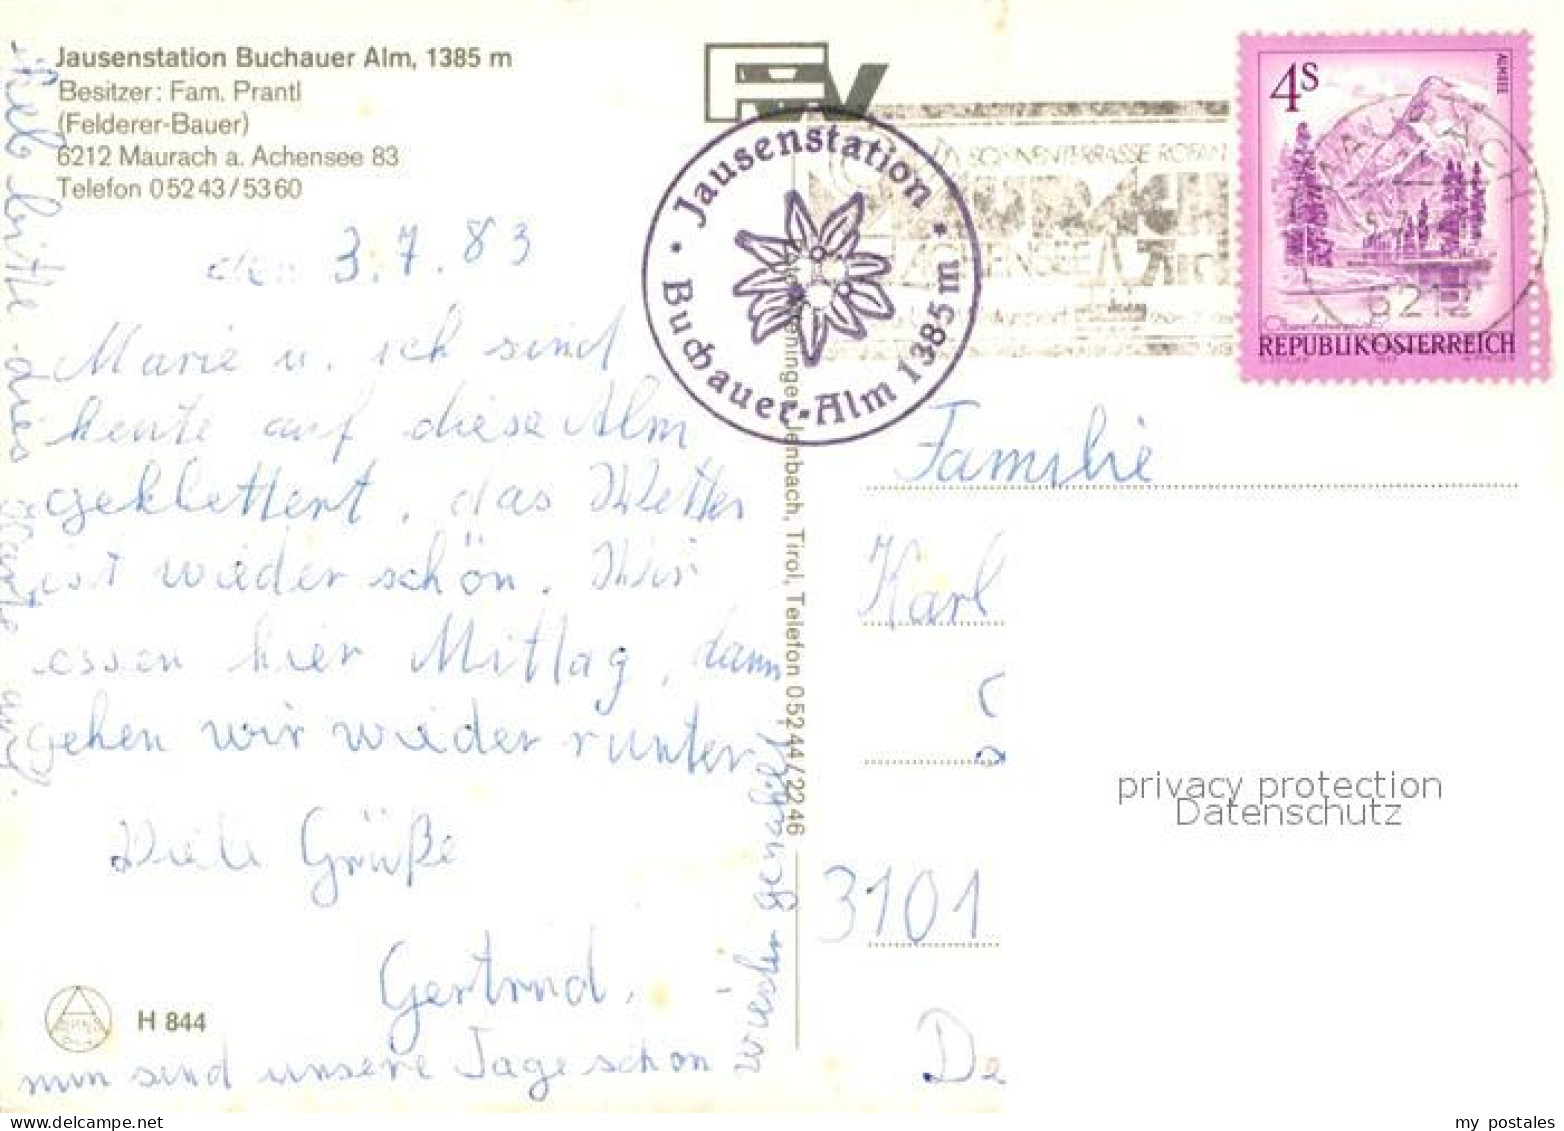 Jausenstation Buchauer Alm, 1385 m
Besitzer: Fam. Prantl
(Felderer-Bauer)
6212 Maurach a. Achensee 83
Telefon 05243/5360
den 3.7.83
Marie u. ich sind
heute auf diese Alm
geklettert, das Wetter
ist wieder schön. Wir
essen hier Mittag, dann
gehen wir wieder runter
Viele Grüße
Gertrud.
nun sind unsere Tage schon
wieder gezählt
bitte diese Karte auf.
H 844
Jenbach, Tirol, Telefon 05244/2246
• Jausenstation •
Buchauer-Alm 1385 m
SONNENTERRASSE ROFAN
4S
ALMSEE
REPUBLIK ÖSTERREICH
6212
Familie
Karl
3101
De
privacy protection
Datenschutz
my postales
www.delcampe.net